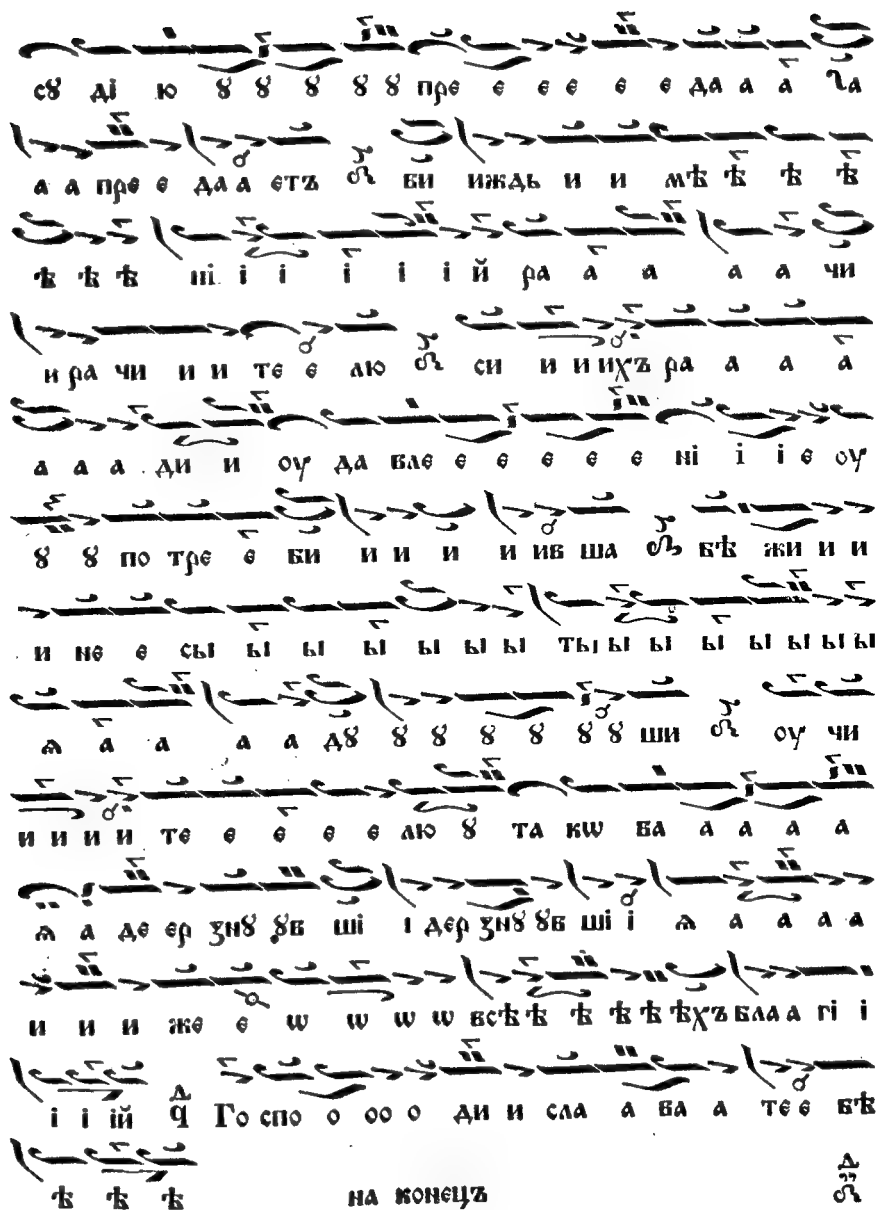 сꙋ ді ю ꙋ ꙋ ꙋ ꙋ ꙋ пре е е е е е да а а га
а а пре е да а етъ би иждь и и мѣ ѣ ѣ ѣ
ѣ ѣ ѣ ні і і і і і й ра а а а а чи
и ра чи и и те е лю си и и ихъ ра а а а
а а а ди и оу да вле е е е е е ні і і е оу
ꙋ ꙋ по тре е би и и и и ив ша бѣ жи и и
и не е сы ы ы ы ы ы ты ы ы ы ы ы ы
ѧ а а а а дꙋ ꙋ ꙋ ꙋ ꙋ ꙋ ꙋ ши оу чи
и и и и те е е е е лю ꙋ та кѡ ва а а а а
ѧ а де ер знꙋ ꙋв ші і дер знꙋ ꙋв ші і ѧ а а а а
и и и же е ѡ ѡ ѡ ѡ всѣ ѣ ѣ ѣ ѣ ѣхъ бла а гі і
і і ій Го спо о оо о ди и сла а ва а те е бѣ
ѣ ѣ ѣ на конецъ